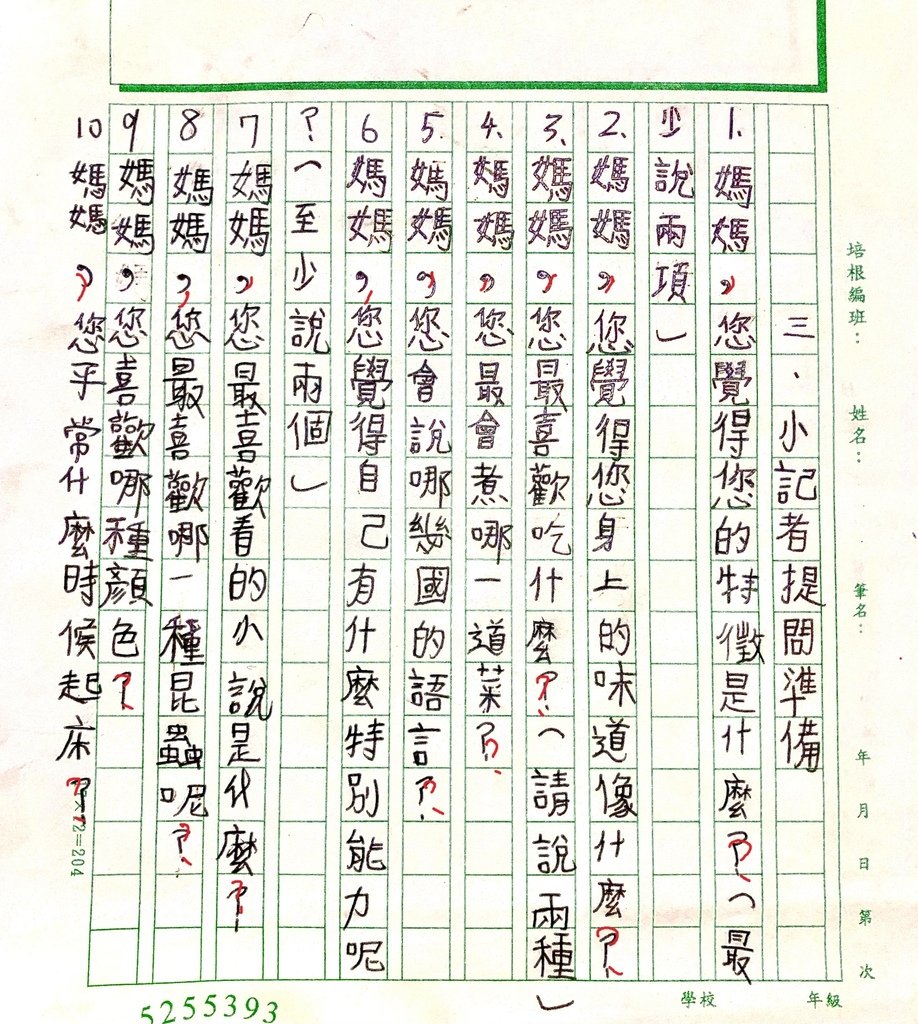 三．小記者提問準備
1.媽媽，您覺得您的特徵是什麼？（最
少說兩項）
2.媽媽，您覺得您身上的味道像什麼？
3.媽媽，您最喜歡吃什麼？（請說兩種）
4.媽媽，您最會煮哪一道菜？
5.媽媽，您會說哪幾國的語言？
6媽媽，您覺得自己有什麼特別能力呢
？（至少說兩個）
7媽媽，您最喜歡看的小說是什麼？
8媽媽，您最喜歡哪一種昆蟲呢？
9媽媽，您喜歡哪種顏色？
10媽媽，您平常什麼時候起床？
培根編班：
姓名：
筆名：
年月日第次
學校
年級
×12=204
5255393